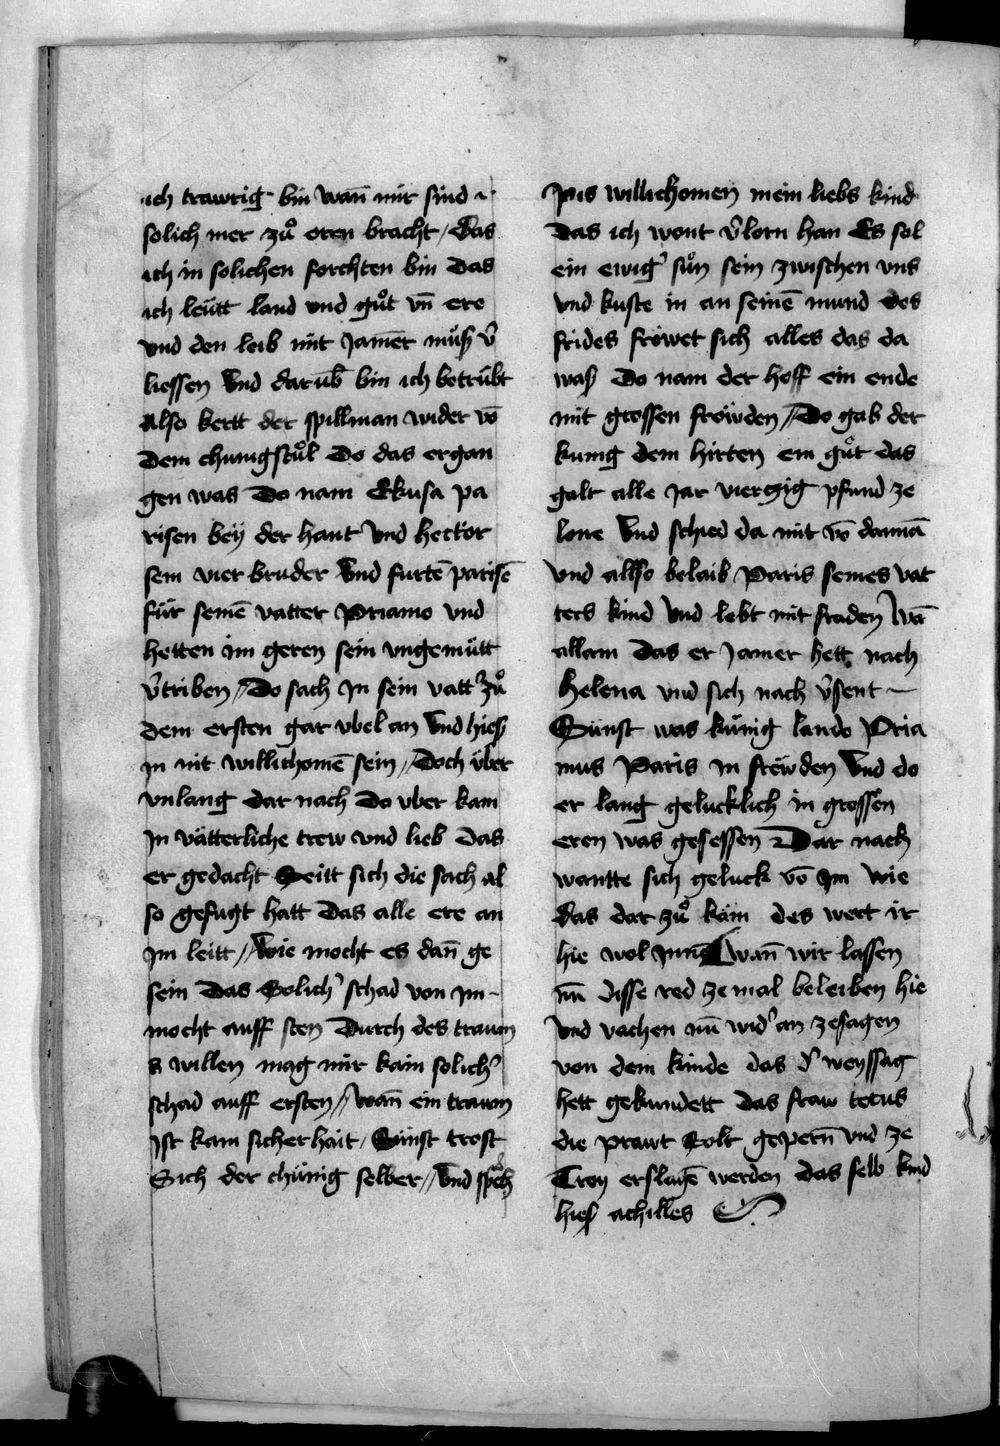 ich trawrig bin wañ mir sind
solich mer zuͦ oren bracht / Das
ich in solichen forchten bin das
ich leütt land vnd guͦt vñ ere
vnd den leib mit Jam̄er muͦß v̄
liessen Vnd darub̄ bin ich betrübt
Also kertt der spillman wider vō
Dem chunigstuͦl Do das ergan
gen was Do nam Ekuba pa
risen beÿ der hant Vnd hector
sein vier bruder Vnd furtē parisē
für seinē vatter Priamo vnd
hetten im geren sein vngemütt
v̄triben // Do sach Jn sein vatt' zuͦ
dem ersten gar vbel an Vnd hieß
in nit willichomē sein // Doch über
vnlang dar nach Do vber kam
Jn vätterliche trew vnd lieb Das
er gedacht Seitt sich die sach al
so gefugt hatt Das alle ere an
Jm leitt // Wie mocht es dañ ge
sein Das Solich' schad von Jm
mocht auff sten Durch des traum
s willen mag mir kain solich'
schad auff ersten // Wañ ein traum
Jst kain sicherhait / Sünst trost
Sich der chünig selber // Vnd sprach
Pis willichomen mein liebs kind
Das ich wont v̄lorn han Es sol
ein ewig' suͦn sein zwischen vns
vnd kuste in an seinē mund des
frides fröwet sich alles das da
waß Do nam der hoff ein ende
mit grossen fröwden // Do gab der
kunig dem hirten ein guͦt das
galt alle Jar vierczig pfund ze
lone Vnd schied da mit vō dannā
Vnd allso belaib Paris seines vat
ters kind Vnd lebt mit fraden Wā
allain Das er Jamer hett nach
Helena vnd sich nach v̄sent
Sünst was künig lando Pria
mus Paris in fröwden Vnd do
er lang gelucklich in grossen
eren was gesessen Dar nach
wantte sich geluck vō Jm Wie
das dar zuͦ käm des wert ir
hie wol Jnnē Wañ wir lassen
nū disse red ze mal beleiben hie
Vnd vachen nū wid' an zesagen
von dem kinde das d' weyssag
hett gekundett Das fraw tetus
die prawt Solt gepern̄ vnd ze
Troy erslagē werden das selb kind
hieß achilles